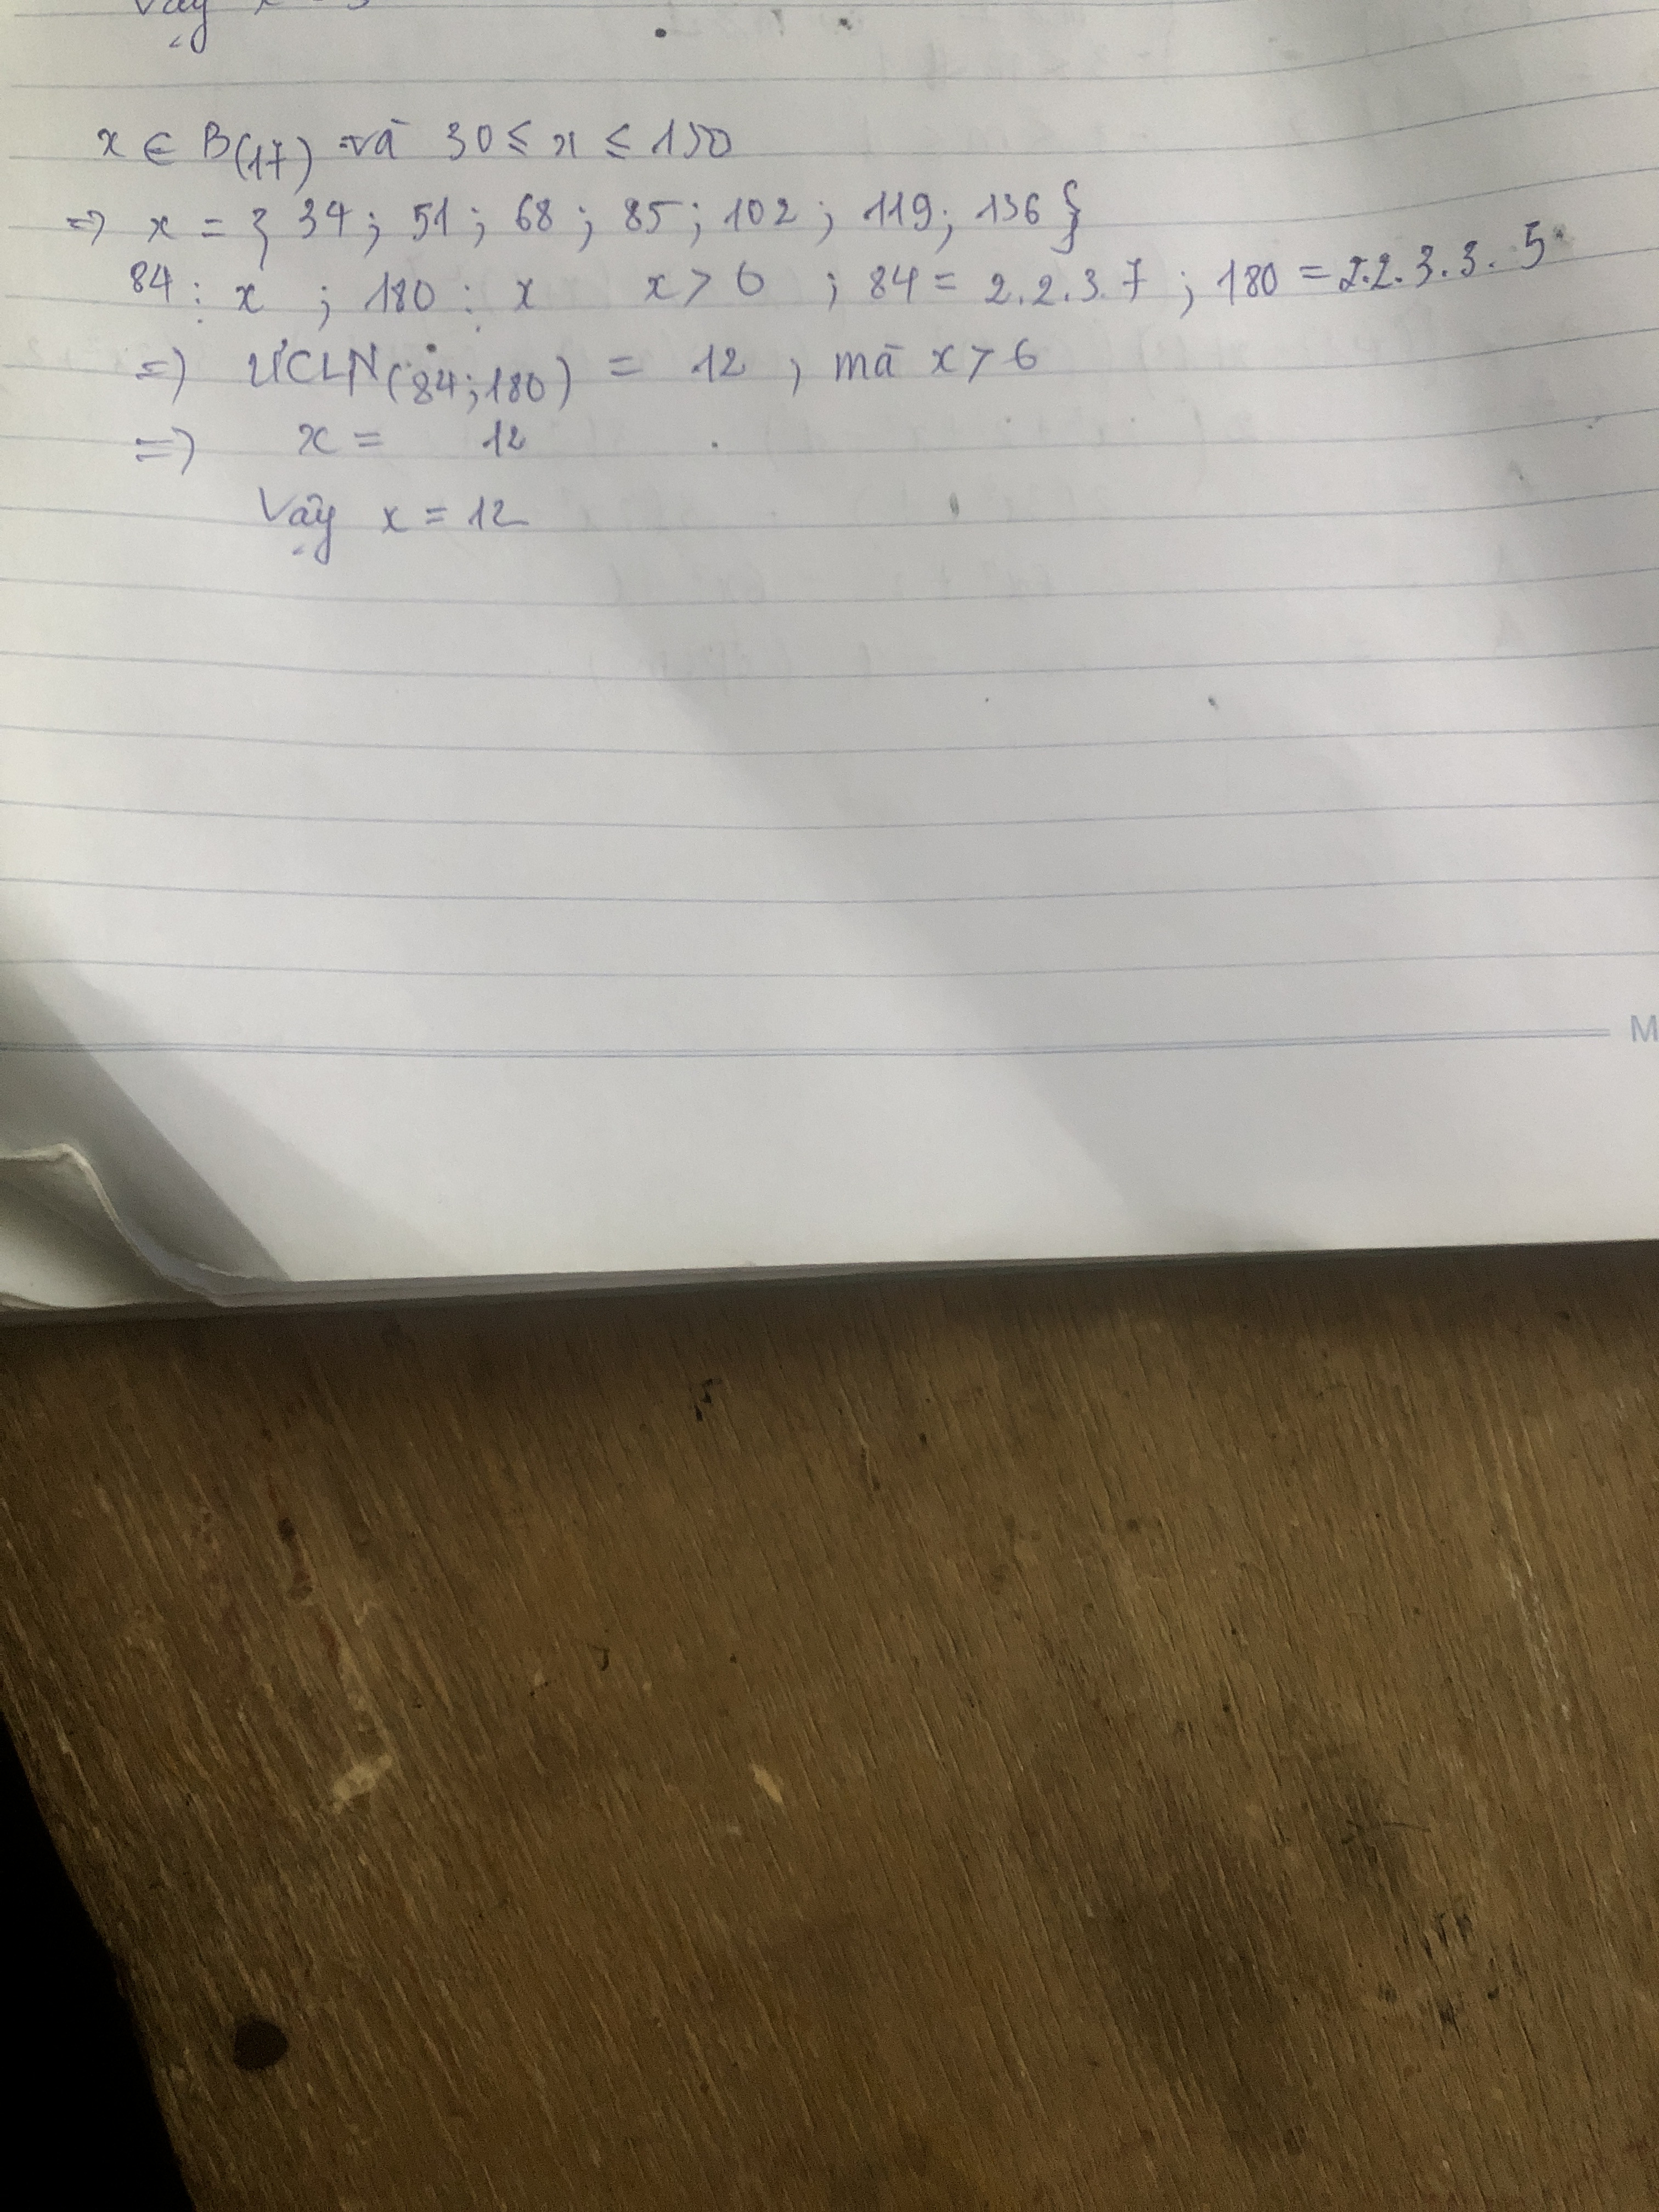 x ∈ B(17) và 30 ≤ x ≤ 150
=> x = { 34; 51; 68; 85; 102; 119; 136 }
84 ⋮ x ; 180 ⋮ x x > 6 ; 84 = 2.2.3.7 ; 180 = 2.2.3.3.5
=> ƯCLN(84;180) = 12 , mà x > 6
=> x = 12
Vậy x = 12
M